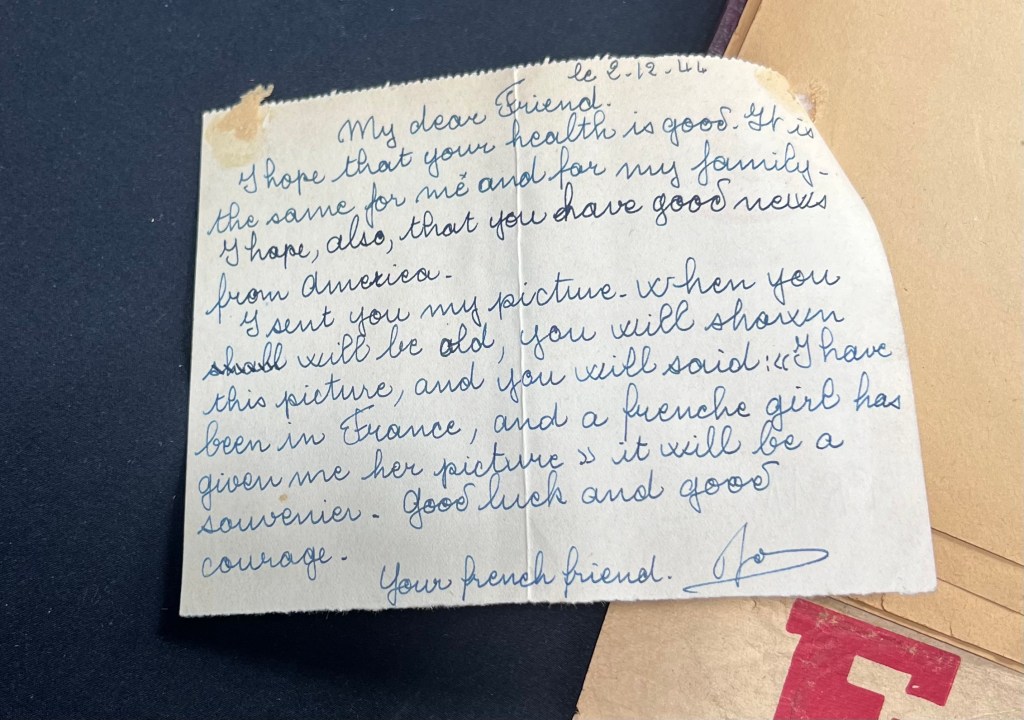 le 2-12-44
My dear Friend.
I hope that your health is good. It is
the same for mé and for my family.
I hope, also, that you have good news
from America.
I sent you my picture. When you
shall will be old, you will shown
this picture, and you will said : « I have
been in France, and a frenche girl has
given me her picture » it will be a
souvenier. Good luck and good
courage.
Your french friend.